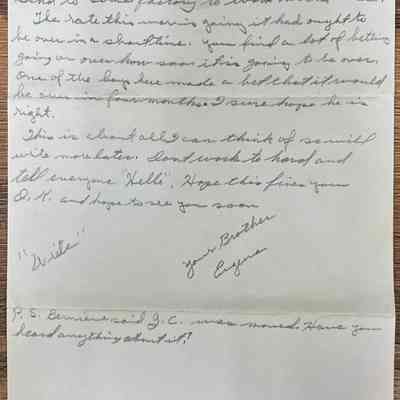 send to some factory to work
The rate this war is going it had ought to
be over in a short time. You find a lot of betting
going on over how soon it is going to be over.
One of the boys here made a bet that it would
be over in four months. I sure hope he is
right.
This is about all I can think of so will
write more later. Dont work to hard and
tell everyone "Hello". Hope this fines you
O.K. and hope to see you soon
"Write"
Your Brother
Eugene
P.S. Berniece said J.C. was moved. Have you
heard anything about it?